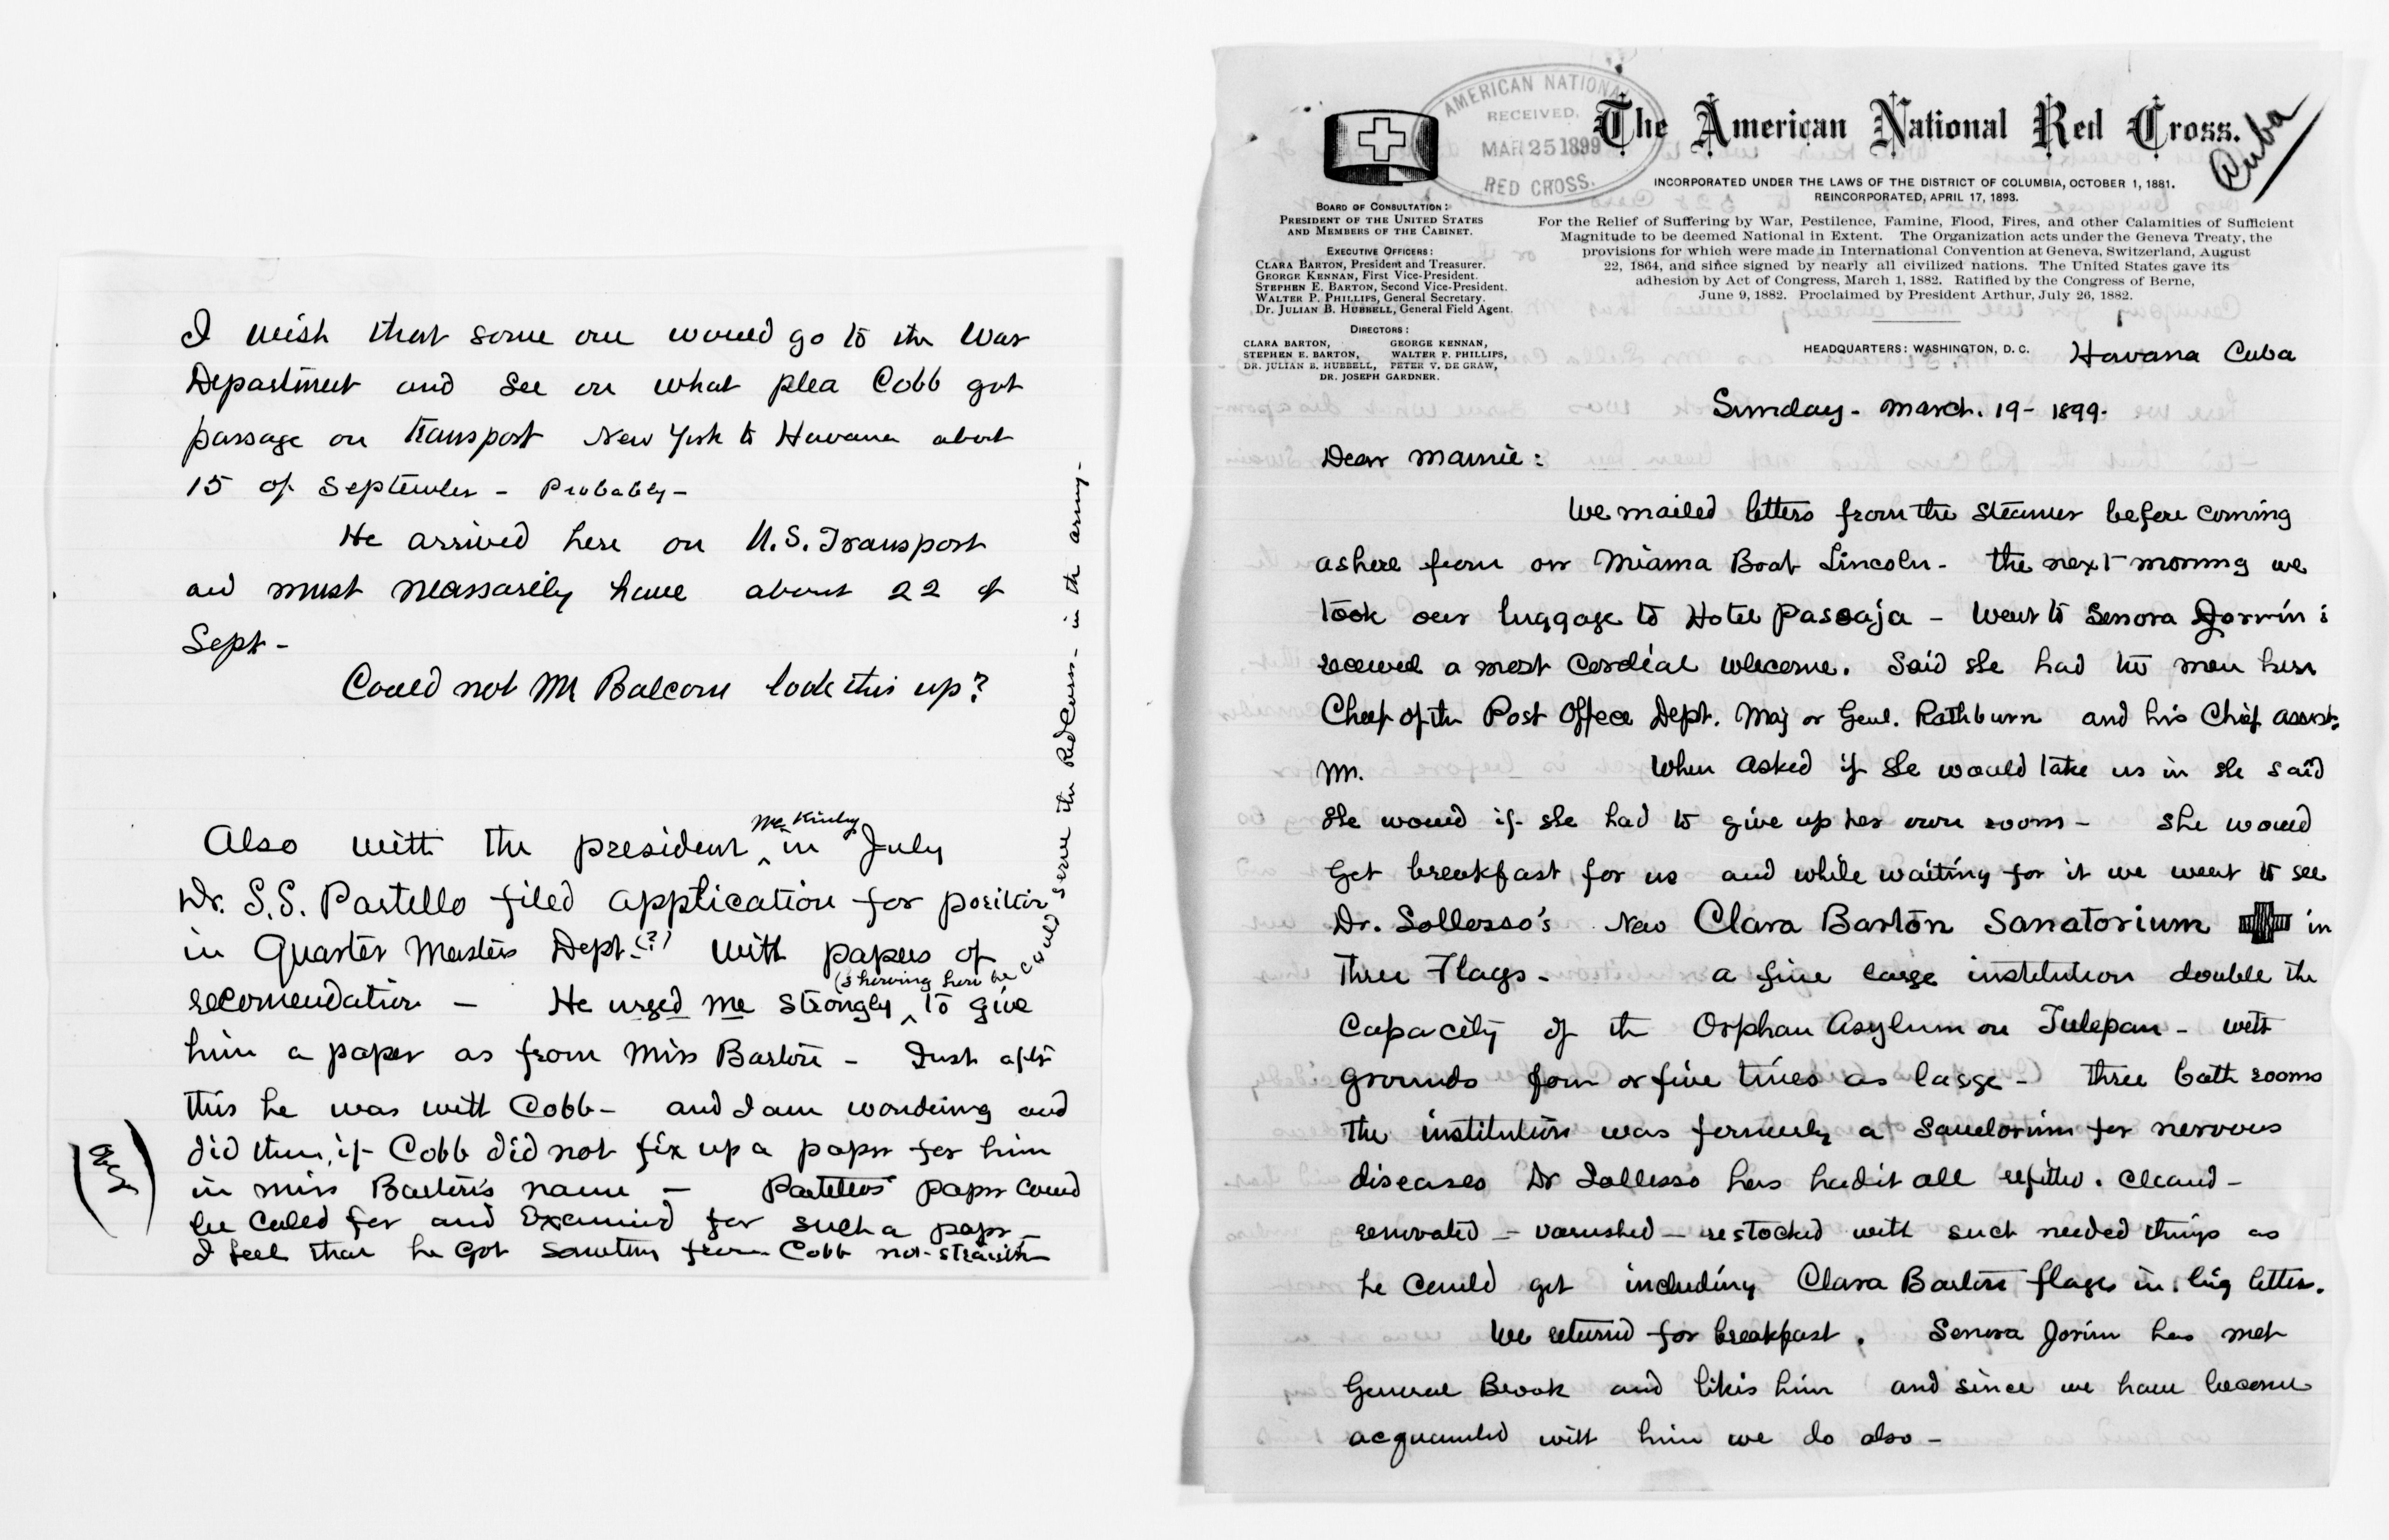 I wish that some one would go to the War
Department and see on what plea Cobb got
passage on transport New York to Havana about
15 of September - Probably -
He arrived here on U.S. Transport
and must neassarily have about 22 of
Sept -
Could not Mr Balcom look this up?
Also with the president McKinly in July
Dr. S.S. Partello filed application for position
in Quarter Masters Dept. (?) with papers of
recomendation - He urged me strongly (showing how he could serve the Red Cross - in the army - to give
him a paper as from Miss Barton - Just after
this he was with Cobb - and I am wondering and
did then, if Cobb did not fix up a paper for him
in miss Barton's name - Partellos' paper could
be called for and Examined for such a paper -
I feel that he got something from Cobb not straight
AMERICAN NATIONAL
RECEIVED.
MAR 25 1899
RED CROSS.
The American National Red Cross.
Cuba
INCORPORATED UNDER THE LAWS OF THE DISTRICT OF COLUMBIA, OCTOBER 1, 1881.
REINCORPORATED, APRIL 17, 1893.
For the Relief of Suffering by War, Pestilence, Famine, Flood, Fires, and other Calamities of Sufficient
Magnitude to be deemed National in Extent. The Organization acts under the Geneva Treaty, the
provisions for which were made in International Convention at Geneva, Switzerland, August
22, 1864, and since signed by nearly all civilized nations. The United States gave its
adhesion by Act of Congress, March 1, 1882. Ratified by the Congress of Berne,
June 9, 1882. Proclaimed by President Arthur, July 26, 1882.
BOARD OF CONSULTATION:
PRESIDENT OF THE UNITED STATES
AND MEMBERS OF THE CABINET.
EXECUTIVE OFFICERS:
CLARA BARTON, President and Treasurer.
GEORGE KENNAN, First Vice-President.
STEPHEN E. BARTON, Second Vice-President.
WALTER P. PHILLIPS, General Secretary.
Dr. JULIAN B. HUBBELL, General Field Agent.
DIRECTORS:
CLARA BARTON, GEORGE KENNAN,
STEPHEN E. BARTON, WALTER P. PHILLIPS,
DR. JULIAN B. HUBBELL, PETER V. DE GRAW,
DR. JOSEPH GARDNER.
HEADQUARTERS: WASHINGTON, D. C. Havana Cuba
Sunday - March. 19 - 1899.
Dear Mamie:
We mailed letters from the steamer before coming
ashere from our Miama Boat Lincoln - the next morning we
took our luggage to Hotel Passaja - Went to Senora Jorrin :
received a most Cordial welcome. Said she had two men here
Cheef of the Post Offece Dept. Maj or Genl. Rathburn and his Chief assist.
Mr. When asked if she would take us in she said
she would if she had to give up her own room - she would
Get breakfast for us and while waiting for it we went to see
Dr. Sollosso's New Clara Barton Sanatorium in
Three Flags - a fine large institution double the
Capacity of the Orphan Asylum on Tulepan - with
grounds four or five times as large - three bath rooms
The institution was formerly a Sanetorium for nervous
diseases Dr Sollosso has had it all refitted. cleand -
renovated - varnished - restocked with such needed things as
he could get including Clara Barton flags in big letters.
We returnd for breakfast. Senora Jorrin has met
General Brook and likes him and since we have become
acquainted with him we do also -